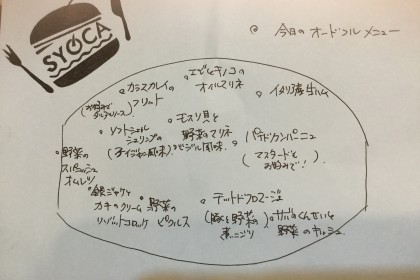 SYOCA
◎ 今日の オードブル メニュー
エビとキノコの
オイルマリネ
カラスカレイの
フリット
(お好みで
タルタルソース)
イタリア産生ハム
モスリ貝と
野菜のマリネ
バジル風味
ソフトシェル
シュリンプの
(チイジャン風味)
パテドカンパーニュ
(マスタードと
お好みで!)
野菜の
スパニッシュ
オムレツ
銀ジャケと
カキのクリーム
リバットコロッケ
野菜の
ピクルス
テットドフロマージュ
(豚と野菜の
煮こごり)
サバのくんせいと
野菜のキッシュ